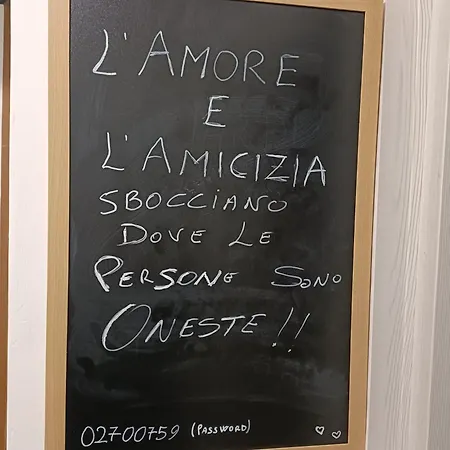 L'AMORE
E
L'AMICIZIA
SBOCCIANO
DOVE LE
PERSONE SONO
ONESTE!!
02700759 (PASSWORD)